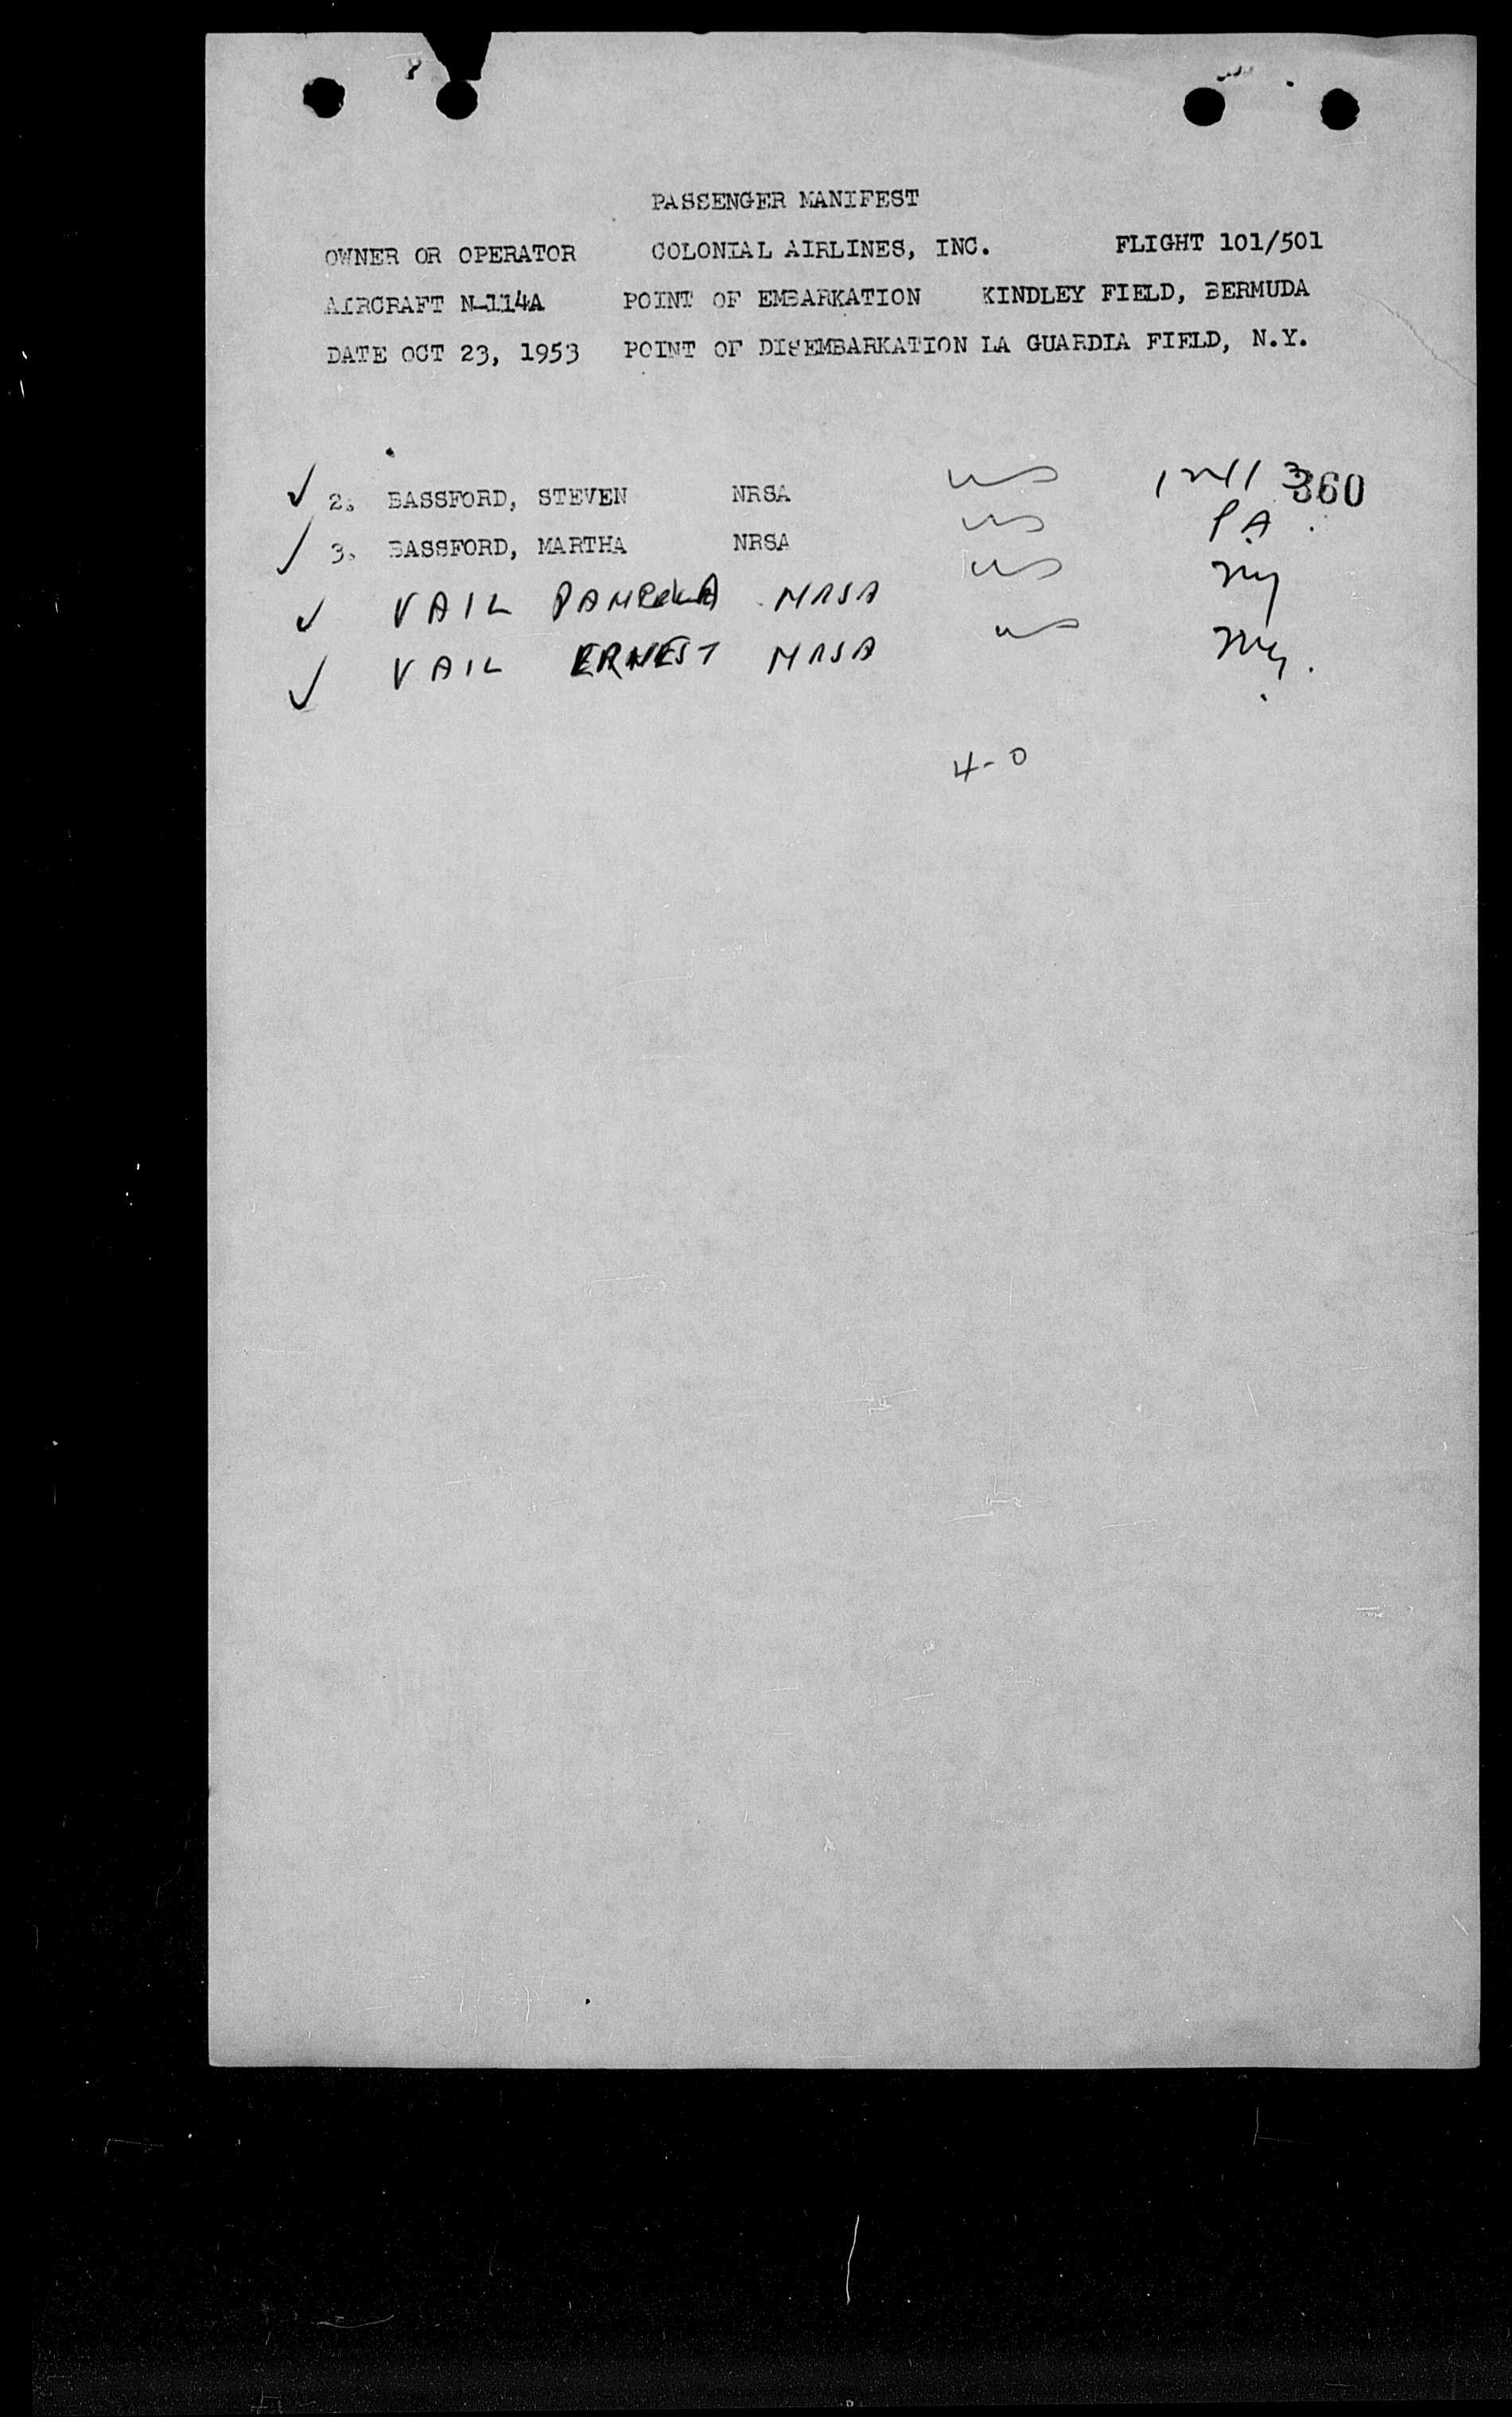 PASSENGER MANIFEST
OWNER OR OPERATOR COLONIAL AIRLINES, INC. FLIGHT 101/501
AIRCRAFT N-114A POINT OF EMBARKATION KINDLEY FIELD, BERMUDA
DATE OCT 23, 1953 POINT OF DISEMBARKATION LA GUARDIA FIELD, N.Y.
✓ 2. BASSFORD, STEVEN NRSA US 360
✓ 3. BASSFORD, MARTHA NRSA US PA.
✓ VAIL PAMELA NRSA US NY
✓ VAIL ERNEST NRSA US NY.
4-0